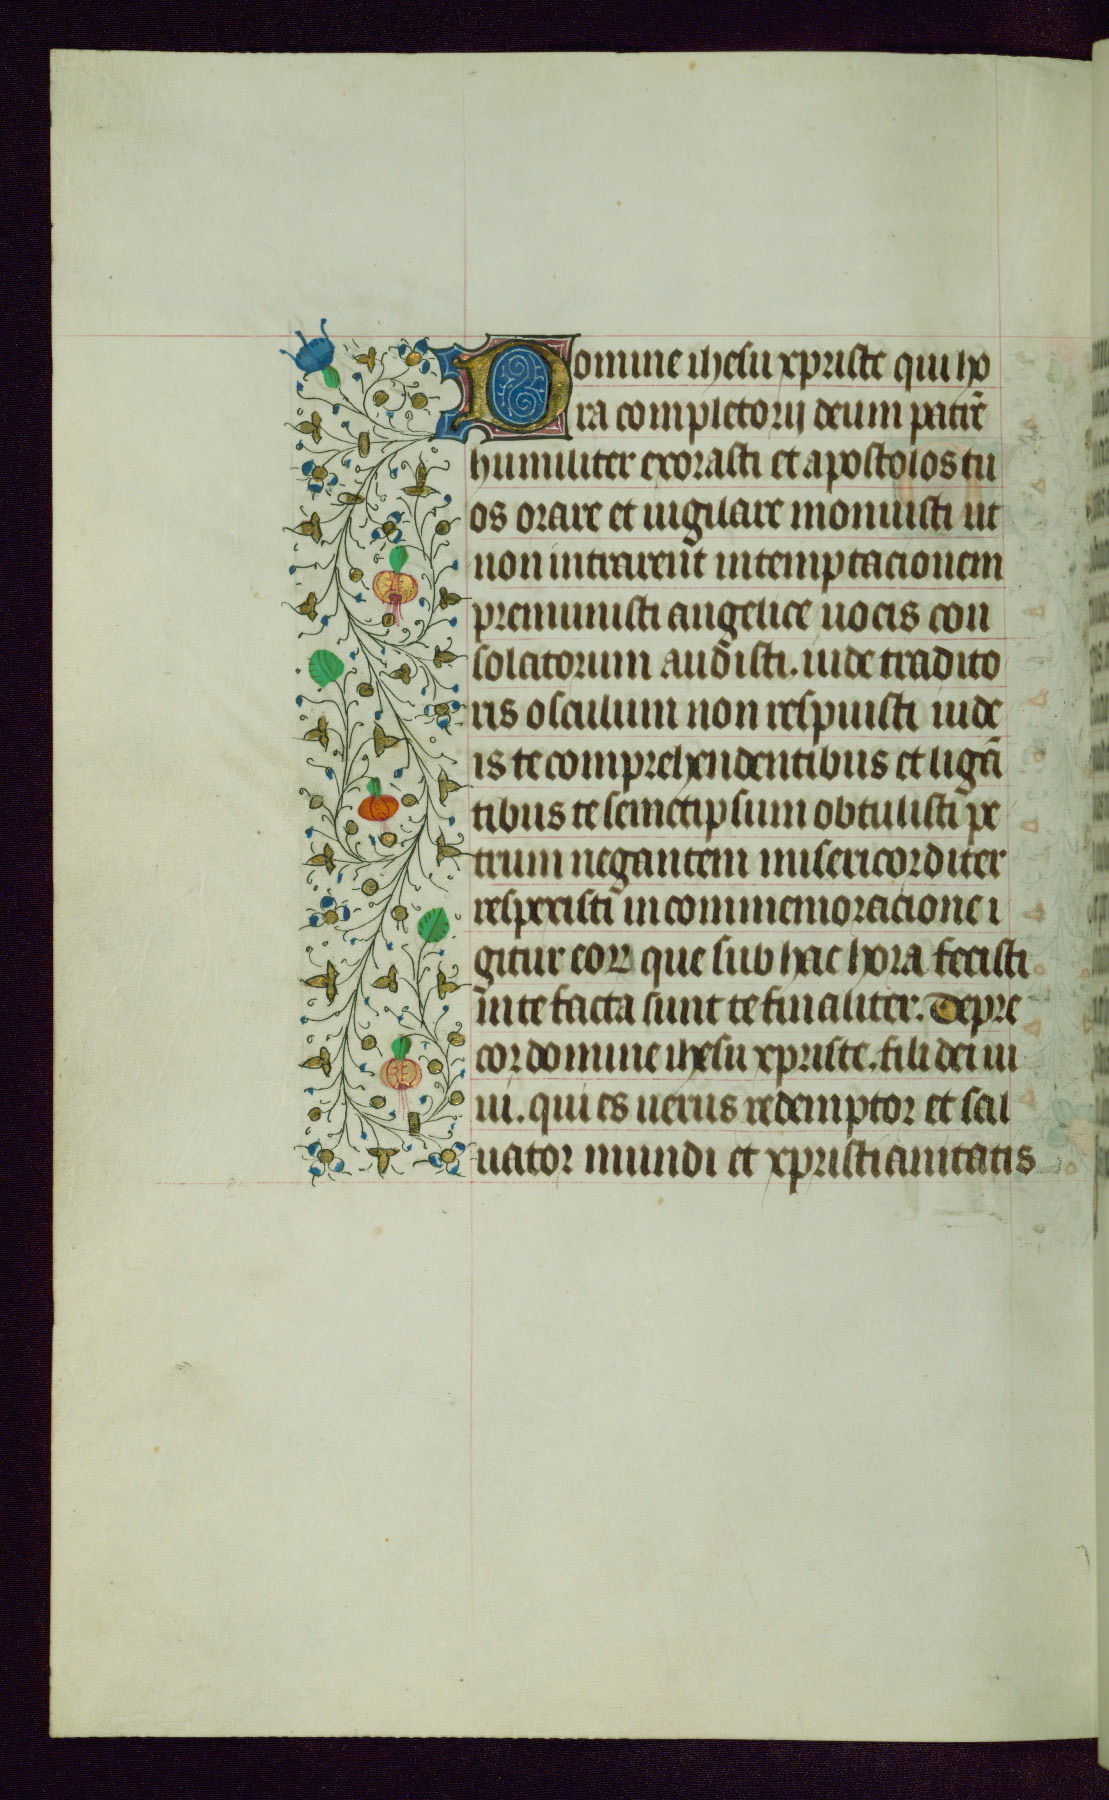 Domine ihesu xpriste qui ho
ra completorij deum patrē
humiliter exorasti et apostolos tu
os orare et uigilare monuisti ut
non intrarent in temptacionem
premunisti angelice uocis con
solatorium audisti. iude tradito
ris osculum non respuisti iude
is te comprehendentibus et ligā
tibus te semetipsum obtulisti pe
trum negantem misericorditer
respexisti in commemoracione i
gitur eoꝝ que sub hac hora fecisti
in te facta sunt te finaliter. Depre
cor domine ihesu xpriste. fili dei ui
ui. qui es uerus redemptor et sal
uator mundi et xpristianitatis